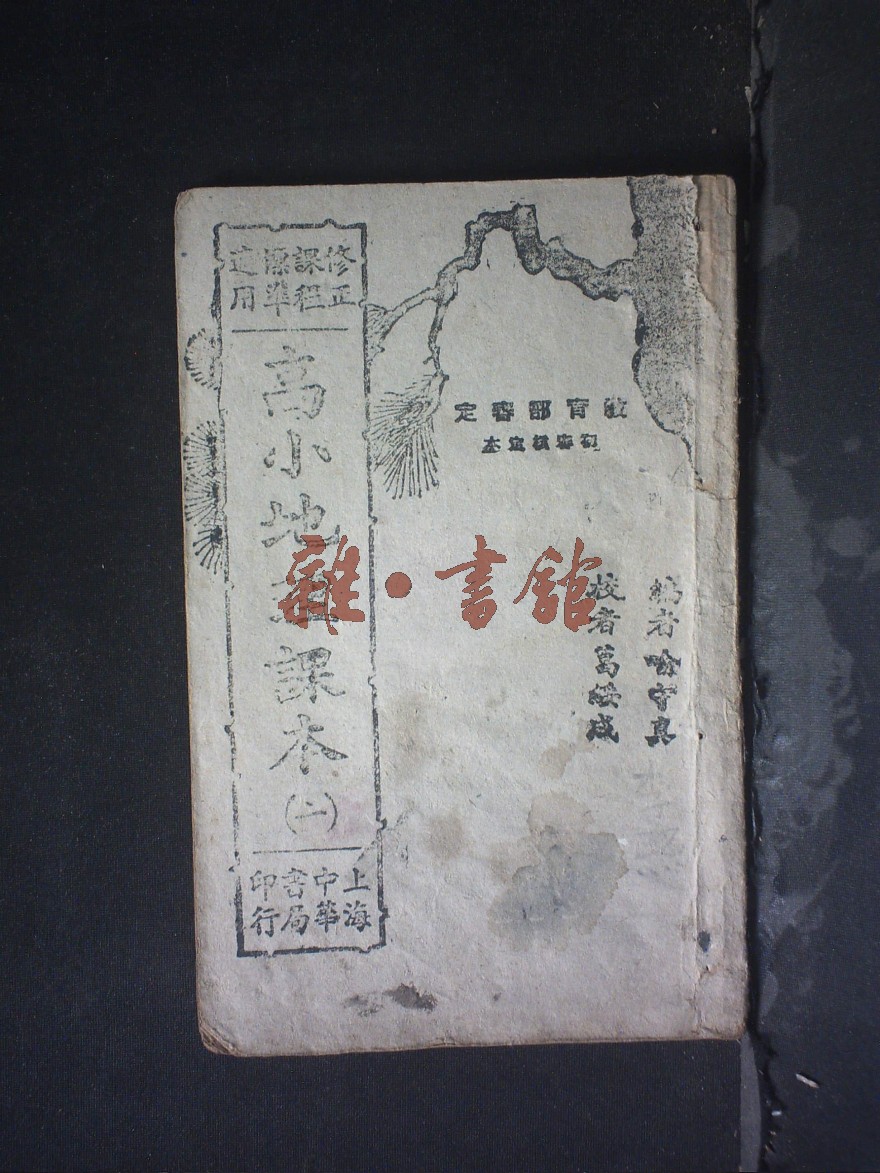 教育部審定
初審核定本
編者喻守真
校者葛綏成
修正
課程
標準
適用
高小地理課本(一)
上海
中華
書局
印行
雜·書舘